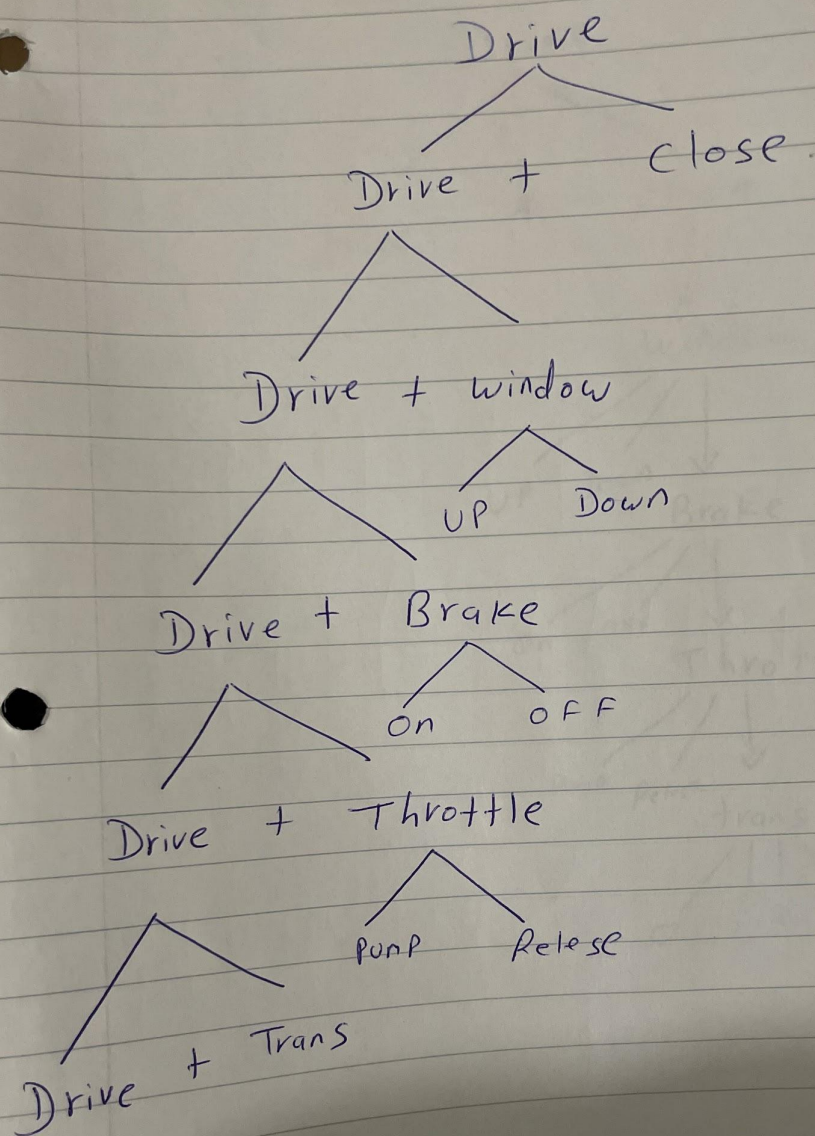 Drive
Drive + Close
Drive + window
UP Down
Drive + Brake
On OFF
Drive + Throttle
Pump Relese
Drive + Trans